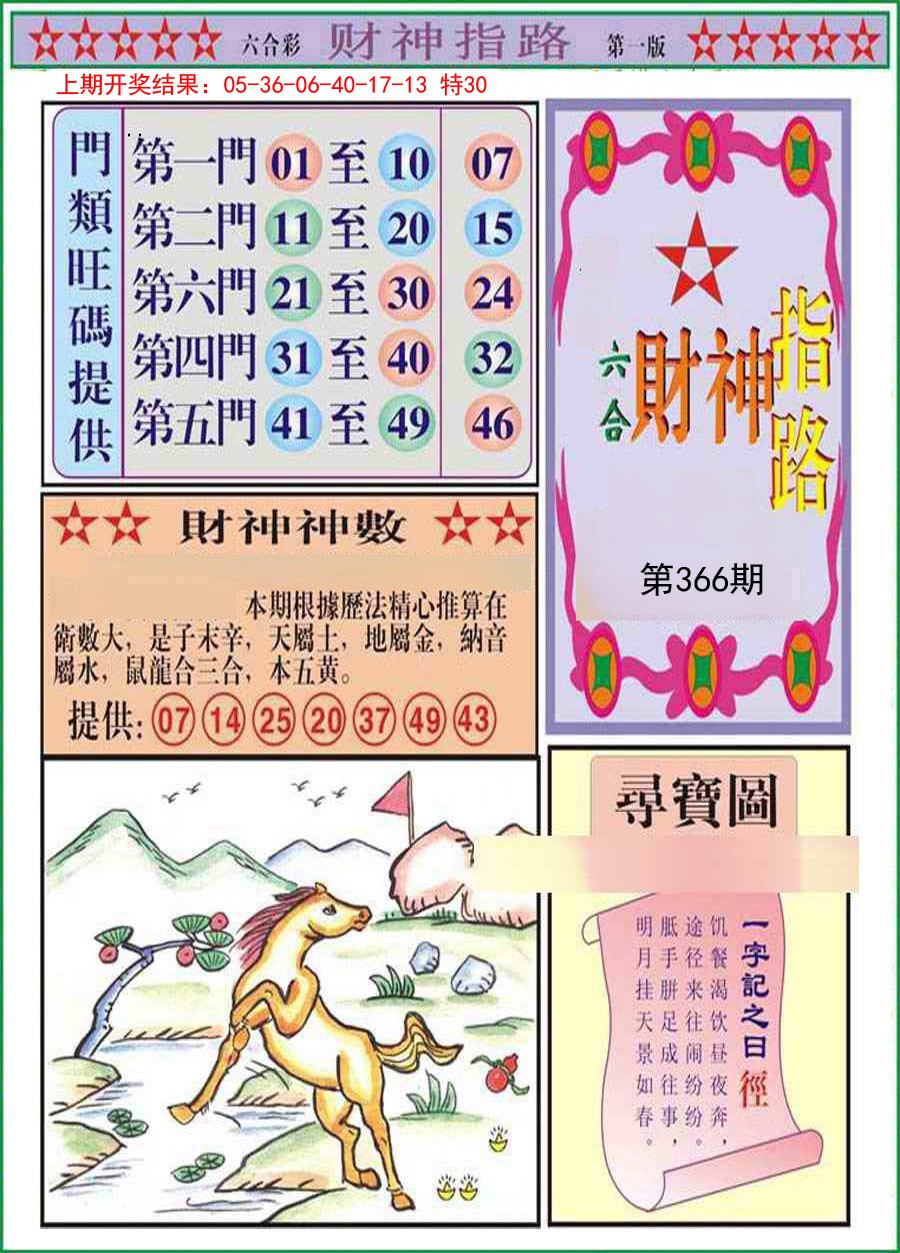 六合彩 财神指路 第一版
上期开奖结果：05-36-06-40-17-13 特30
門類旺碼提供
第一門 01 至 10 07
第二門 11 至 20 15
第六門 21 至 30 24
第四門 31 至 40 32
第五門 41 至 49 46
六合
財神
指路
第366期
財神神數
本期根據歷法精心推算在
衛數大，是子末辛，天屬土，地屬金，納音
屬水，鼠龍合三合，本五黄。
提供: 07 14 25 20 37 49 43
尋寶圖
一字記之曰 徑
饥餐渴饮昼夜奔，
途径来往闹纷纷。
胝手胼足成往事，
明月挂天景如春。